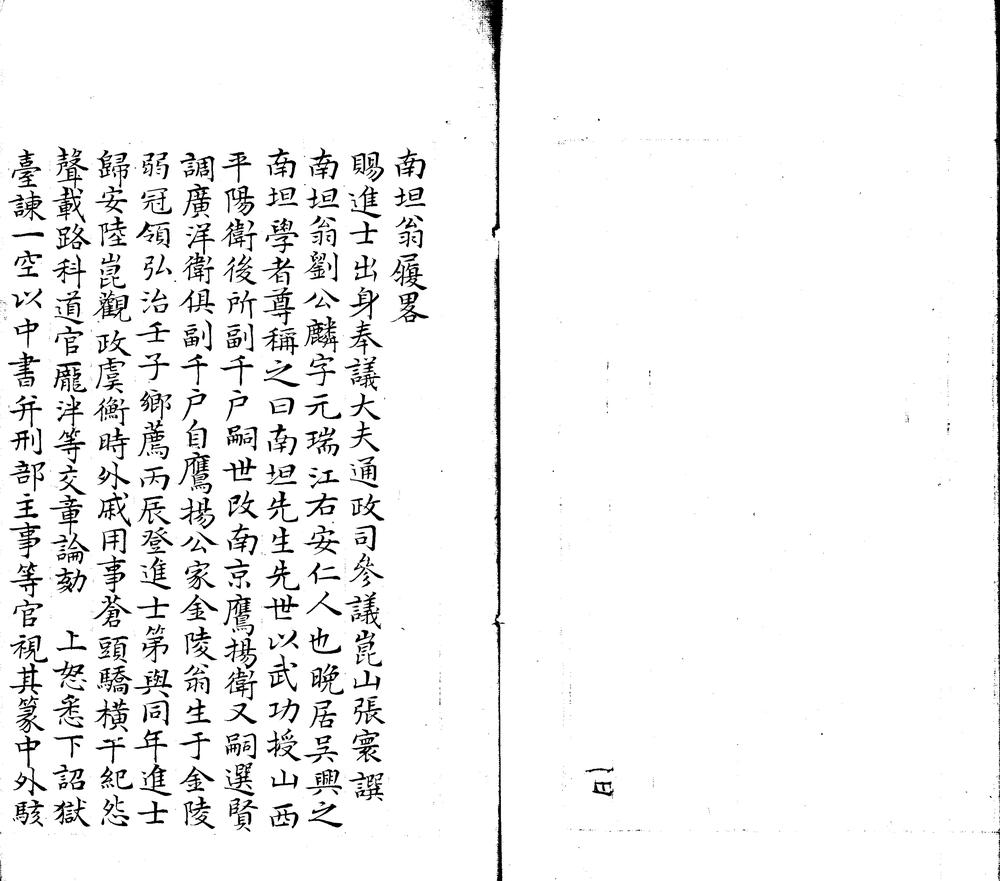 南坦翁履畧
賜進士出身奉議大夫通政司參議崑山張寰譔
南坦翁劉公麟字元瑞江右安仁人也晚居吳興之
南坦學者尊稱之曰南坦先生先世以武功授山西
平陽衛後所副千户嗣世改南京鷹揚衛又嗣選賢
調廣洋衛俱副千户自鷹揚公家金陵翁生于金陵
弱冠領弘治壬子鄉薦丙辰登進士第與同年進士
歸安陸崑觀政虞衡時外戚用事蒼頭驕橫干紀怨
聲載路科道官龎泮等交章論劾　上怒悉下詔獄
臺諫一空以中書并刑部主事等官視其篆中外駭